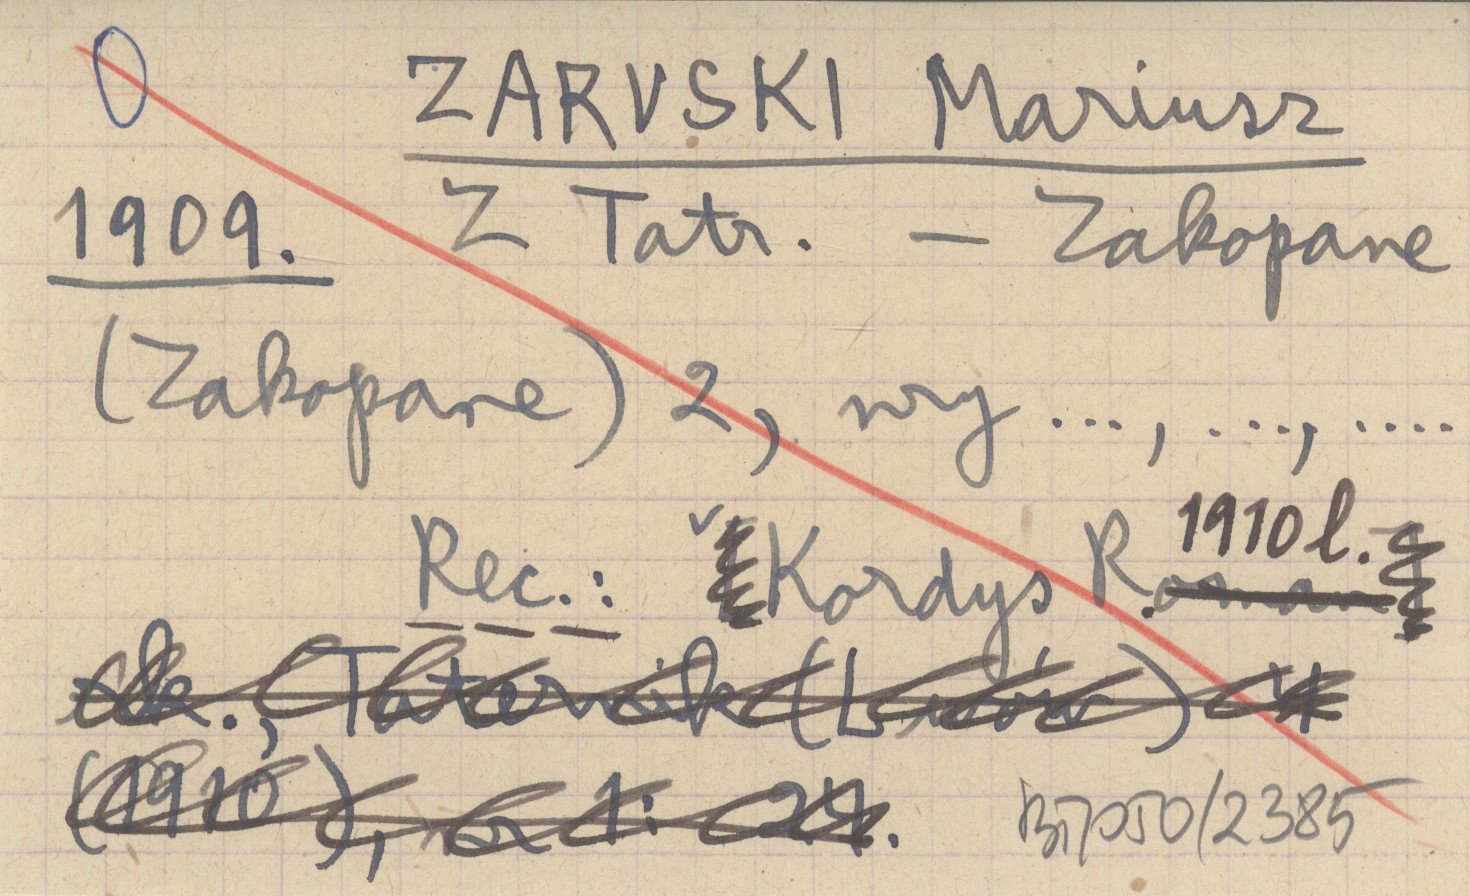 ZARUSKI Mariusz
1909. Z Tatr. — Zakopane
(Zakopane) 2, nry ..., ..., ....
Rec.: Kordys Roman 1910 l.
rk., Taternik (Lwów) 4
(1910), nr 1: 24.
/2385